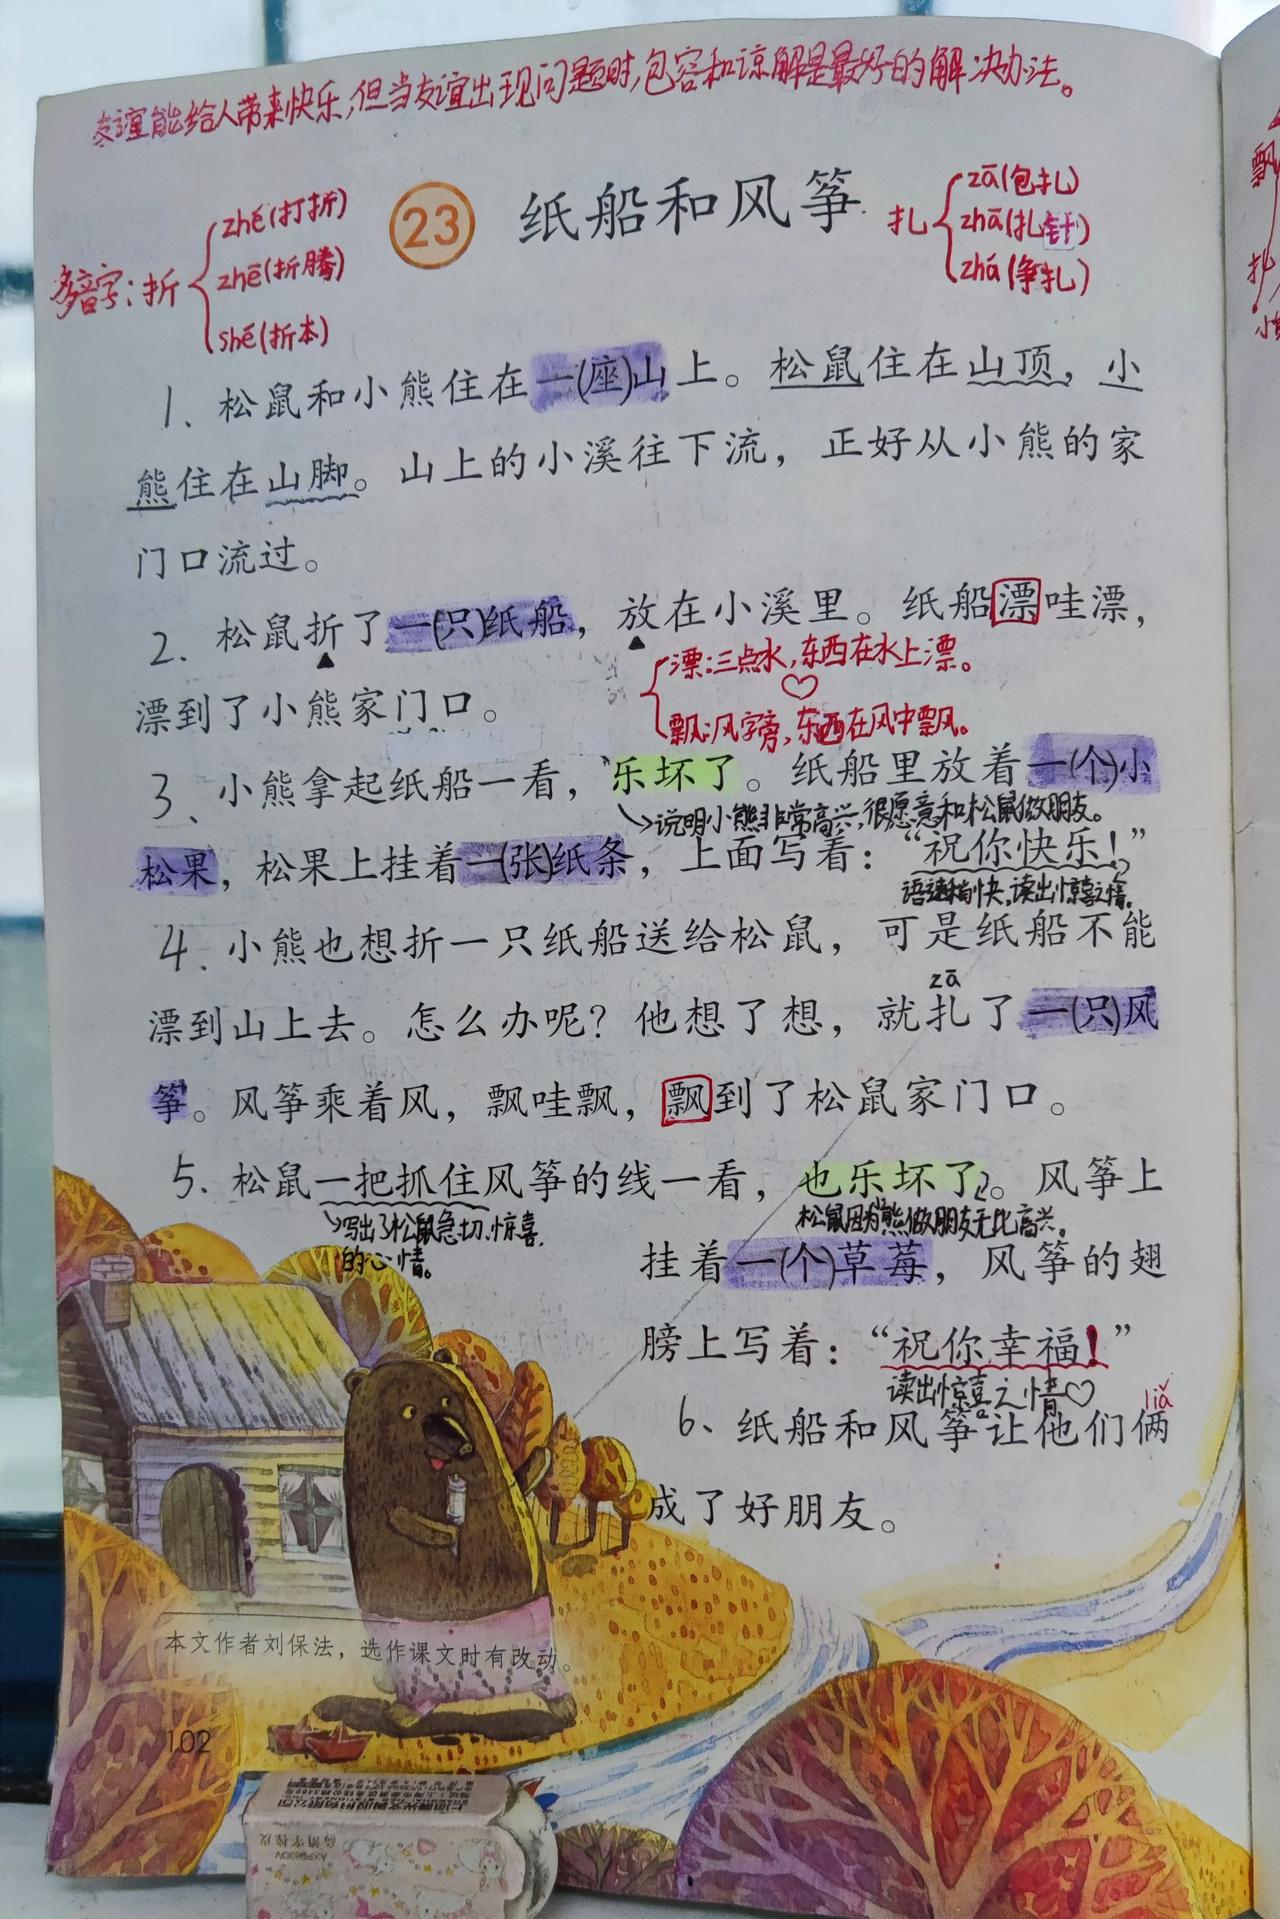 友谊能给人带来快乐,但当友谊出现问题时,包容和谅解是最好的解决办法。
23 纸船和风筝
多音字:折
zhé(打折)
zhē(折腾)
shé(折本)
扎
zā(包扎)
zhā(扎针)
zhá(争扎)
1、松鼠和小熊住在一(座)山上。松鼠住在山顶,小
熊住在山脚。山上的小溪往下流,正好从小熊的家
门口流过。
2、松鼠折了一(只)纸船,放在小溪里。纸船漂哇漂,
漂:三点水,东西在水上漂。
漂到了小熊家门口。
飘:风字旁,东西在风中飘。
3、小熊拿起纸船一看,乐坏了。纸船里放着一(个)小
说明小熊非常高兴,很愿意和松鼠做朋友。
松果,松果上挂着一(张)纸条,上面写着:“祝你快乐!”
语速稍快,读出惊喜之情。
4、小熊也想折一只纸船送给松鼠,可是纸船不能
zā
漂到山上去。怎么办呢?他想了想,就扎了一(只)风
筝。风筝乘着风,飘哇飘,飘到了松鼠家门口。
5、松鼠一把抓住风筝的线一看,也乐坏了。风筝上
写出了松鼠急切、惊喜
的心情。
松鼠因为熊做朋友无比高兴。
挂着一(个)草莓,风筝的翅
膀上写着:“祝你幸福!”
读出惊喜之情
liǎ
6、纸船和风筝让他们俩
成了好朋友。
本文作者刘保法,选作课文时有改动。
102
上海晨光文具股份有限公司
AXP963DV
高销学橡皮
飘
扎